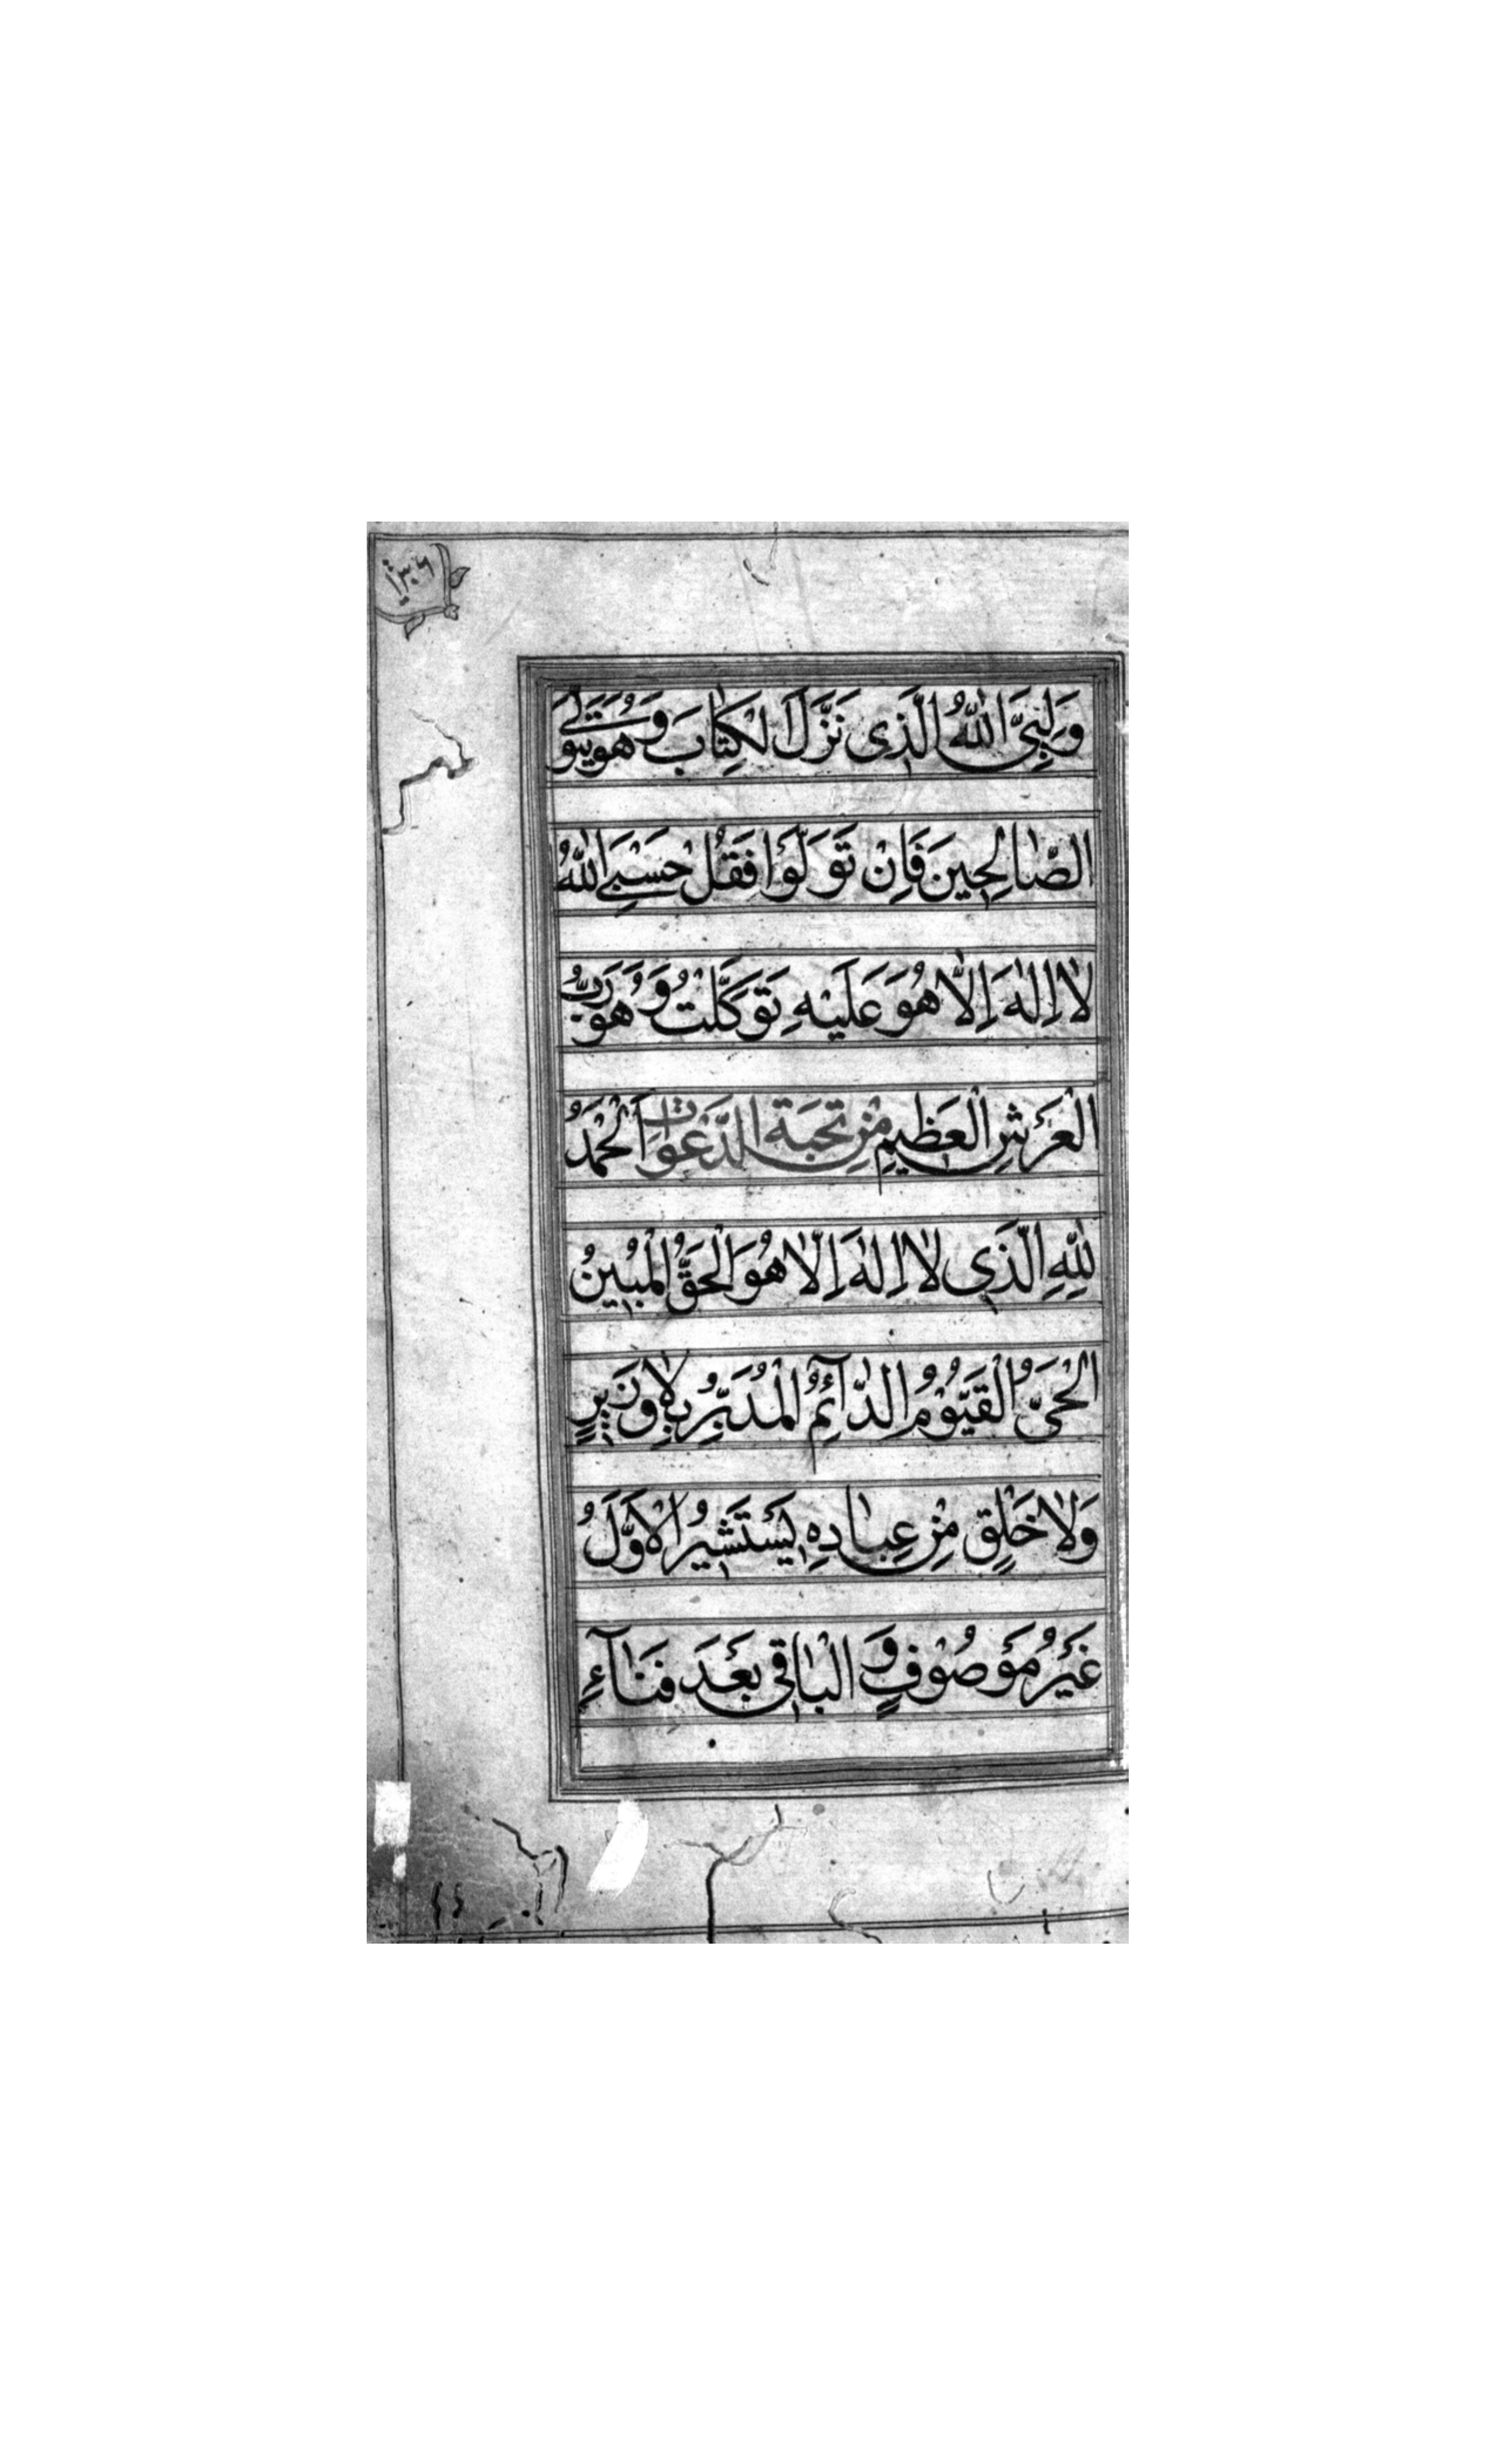 ١٣٠٦
وَلِیِّیَ اللّٰهُ الَّذِی نَزَّلَ الْكِتَابَ وَهُوَ یَتَوَلَّی
الصَّالِحِینَ فَاِنْ تَوَلَّوْا فَقُلْ حَسْبِیَ اللّٰهُ
لَا اِلٰهَ اِلَّا هُوَ عَلَیْهِ تَوَكَّلْتُ وَهُوَ رَبُّ
الْعَرْشِ الْعَظِیمِ مِنْ الدَّعَوَاتِ اَلْحَمْدُ
لِلّٰهِ الَّذِی لَا اِلٰهَ اِلَّا هُوَ الْحَقُّ الْمُبِینُ
الْحَیُّ الْقَیُّوْمُ الدَّآئِمُ الْمُدَبِّرُ بِلَا وَزِیرٍ
وَلَا خَلْقٍ مِنْ عِبَادِهِ یَسْتَشِیرُ الْاَوَّلُ
غَیْرُ مَوْصُوْفٍ وَ الْبَاقِی بَعْدَ فَنَآءِ